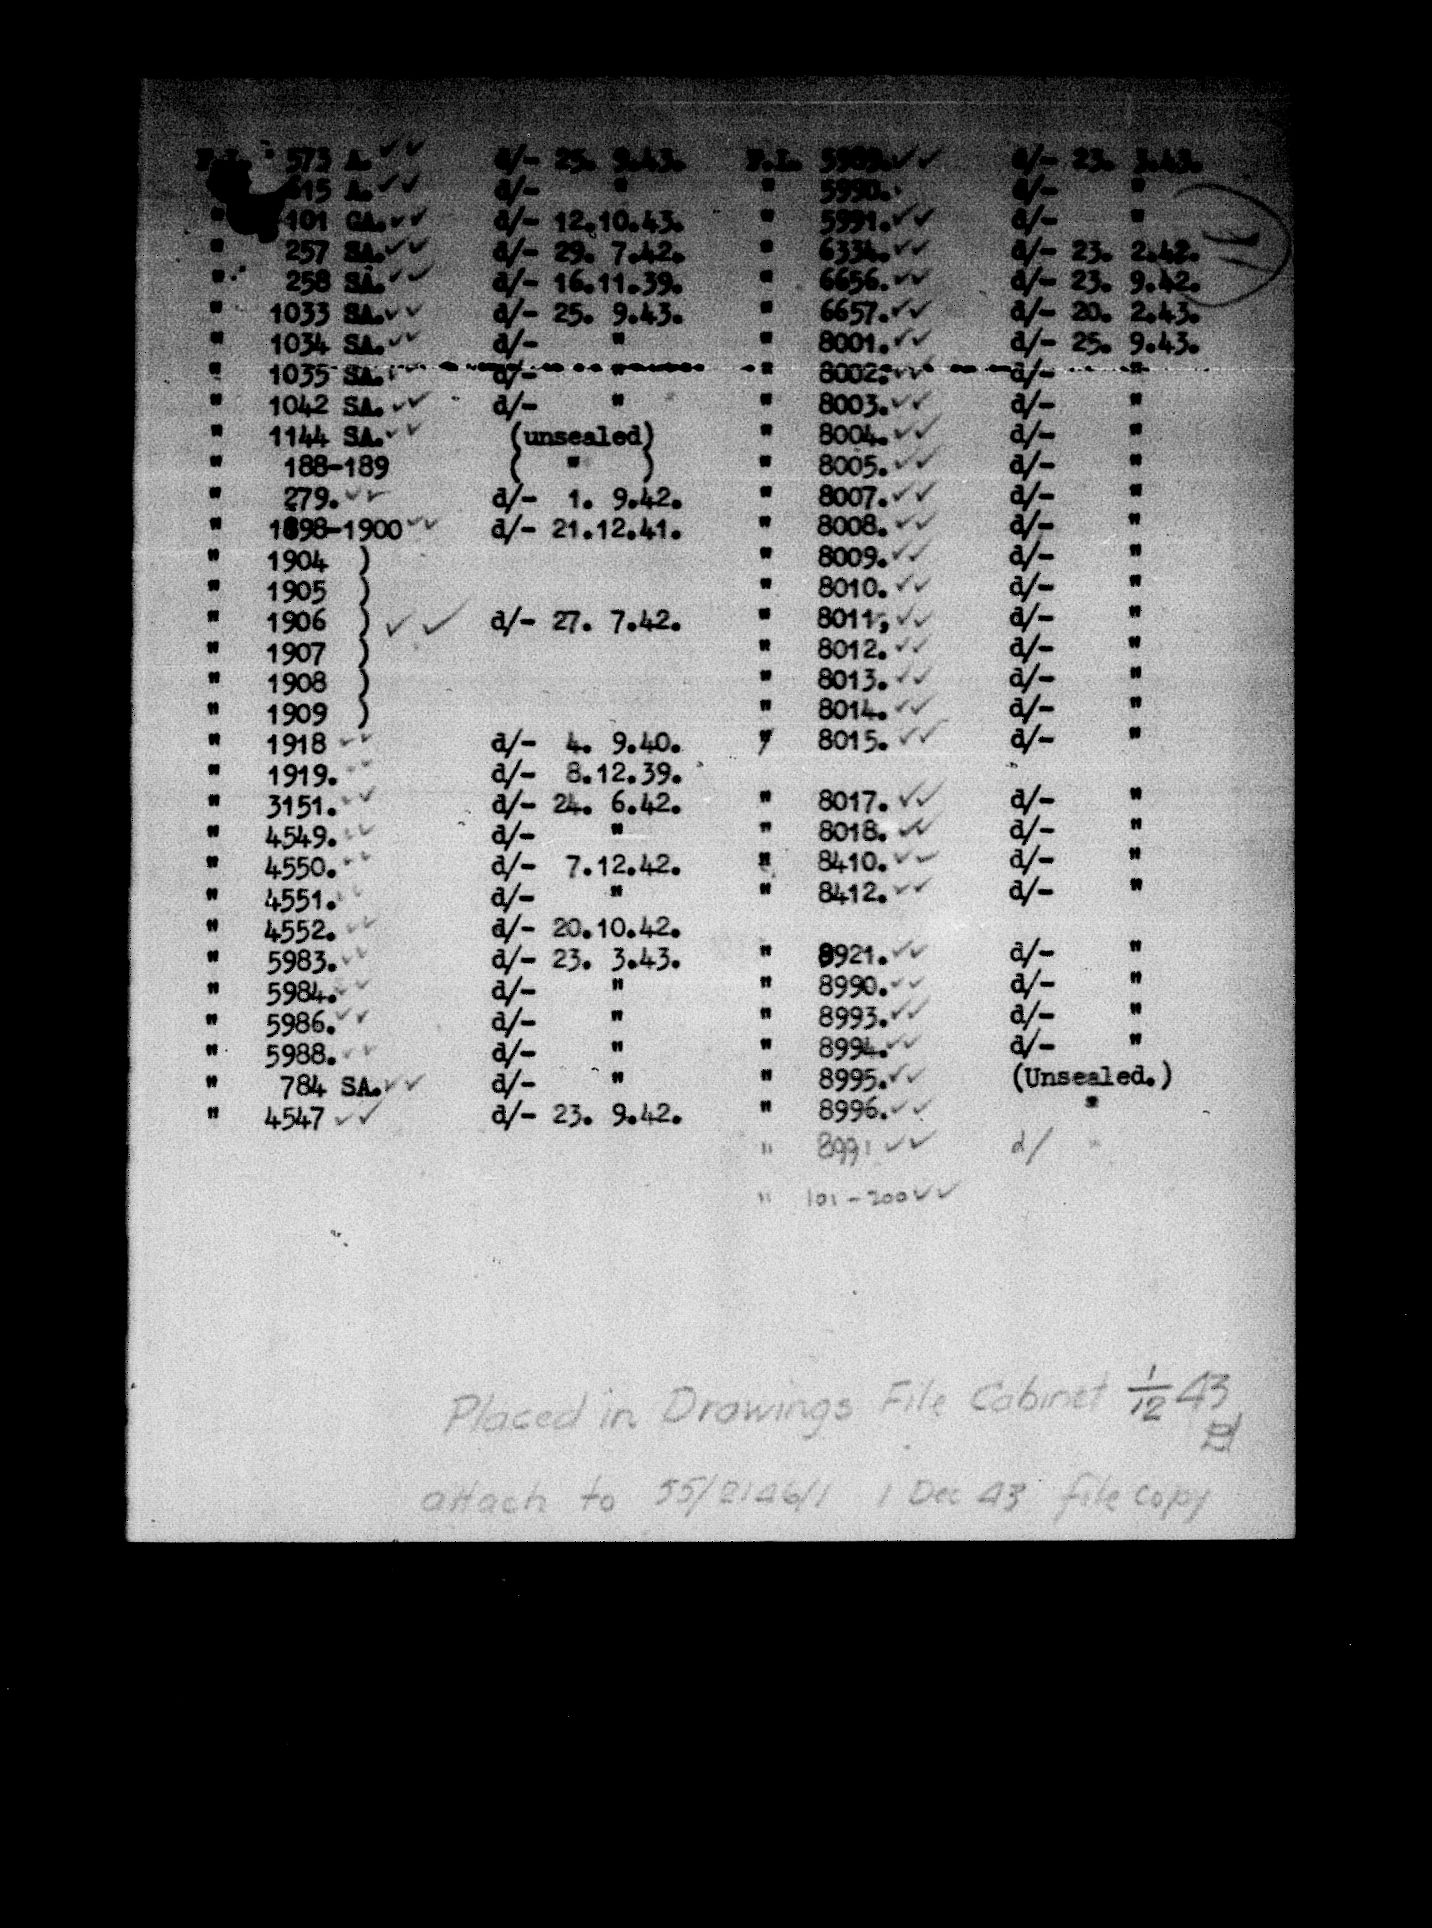 573 A. d/- 25. 9.43.
615 A. d/- "
" 101 CA. d/- 12.10.43.
" 257 SA. d/- 29. 7.42.
" 258 SA. d/- 16.11.39.
" 1033 SA. d/- 25. 9.43.
" 1034 SA. d/- "
" 1035 SA. d/- "
" 1042 SA. d/- "
" 1144 SA. (unsealed)
" 188-189 ( " )
" 279. d/- 1. 9.42.
" 1898-1900 d/- 21.12.41.
" 1904 )
" 1905 )
" 1906 ) d/- 27. 7.42.
" 1907 )
" 1908 )
" 1909 )
" 1918 d/- 4. 9.40.
" 1919. d/- 8.12.39.
" 3151. d/- 24. 6.42.
" 4549. d/- "
" 4550. d/- 7.12.42.
" 4551. d/- "
" 4552. d/- 20.10.42.
" 5983. d/- 23. 3.43.
" 5984. d/- "
" 5986. d/- "
" 5988. d/- "
" 784 SA. d/- "
" 4547 d/- 23. 9.42.
5989. d/- 23. 3.43.
" 5990. d/- "
" 5991. d/- "
" 6334. d/- 23. 2.42.
" 6656. d/- 23. 9.42.
" 6657. d/- 20. 2.43.
" 8001. d/- 25. 9.43.
" 8002. d/- "
" 8003. d/- "
" 8004. d/- "
" 8005. d/- "
" 8007. d/- "
" 8008. d/- "
" 8009. d/- "
" 8010. d/- "
" 8011, d/- "
" 8012. d/- "
" 8013. d/- "
" 8014. d/- "
" 8015. d/- "
" 8017. d/- "
" 8018. d/- "
" 8410. d/- "
" 8412. d/- "
" 8921. d/- "
" 8990. d/- "
" 8993. d/- "
" 8994. d/- "
" 8995. (Unsealed.)
" 8996. "
" 8991 d/ "
" 101-200
Placed in Drawings File Cabinet 1/12 43
attach to 55/2146/1 1 Dec 43 file copy